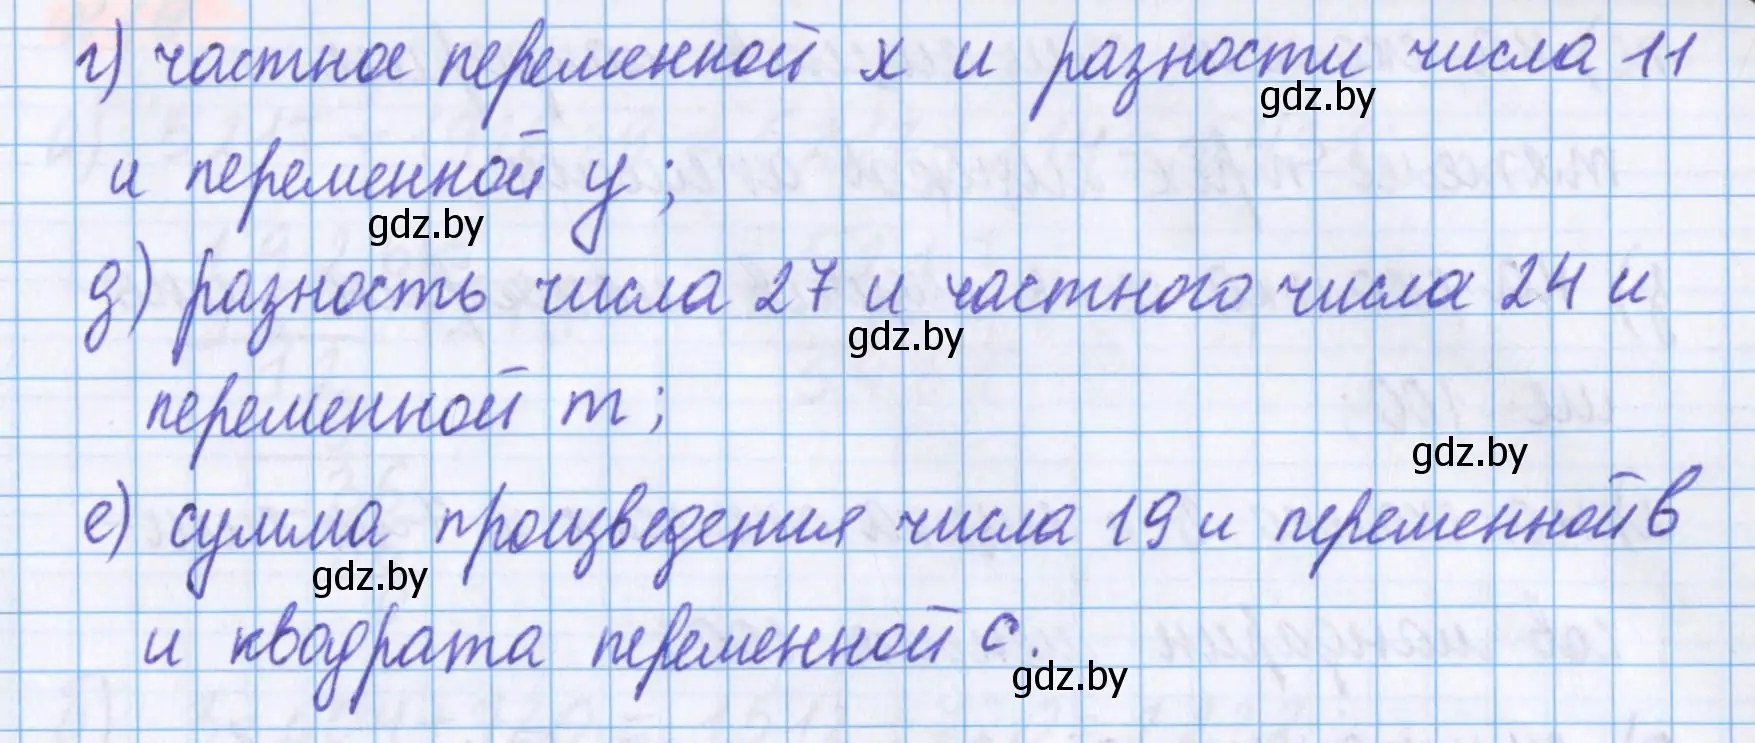 г) частное переменной x и разности числа 11
gdz.by
и переменной y;
gdz.by
д) разность числа 27 и частного числа 24 и
gdz.by
переменной m;
gdz.by
е) сумма произведения числа 19 и переменной в
gdz.by
и квадрата переменной c.
gdz.by